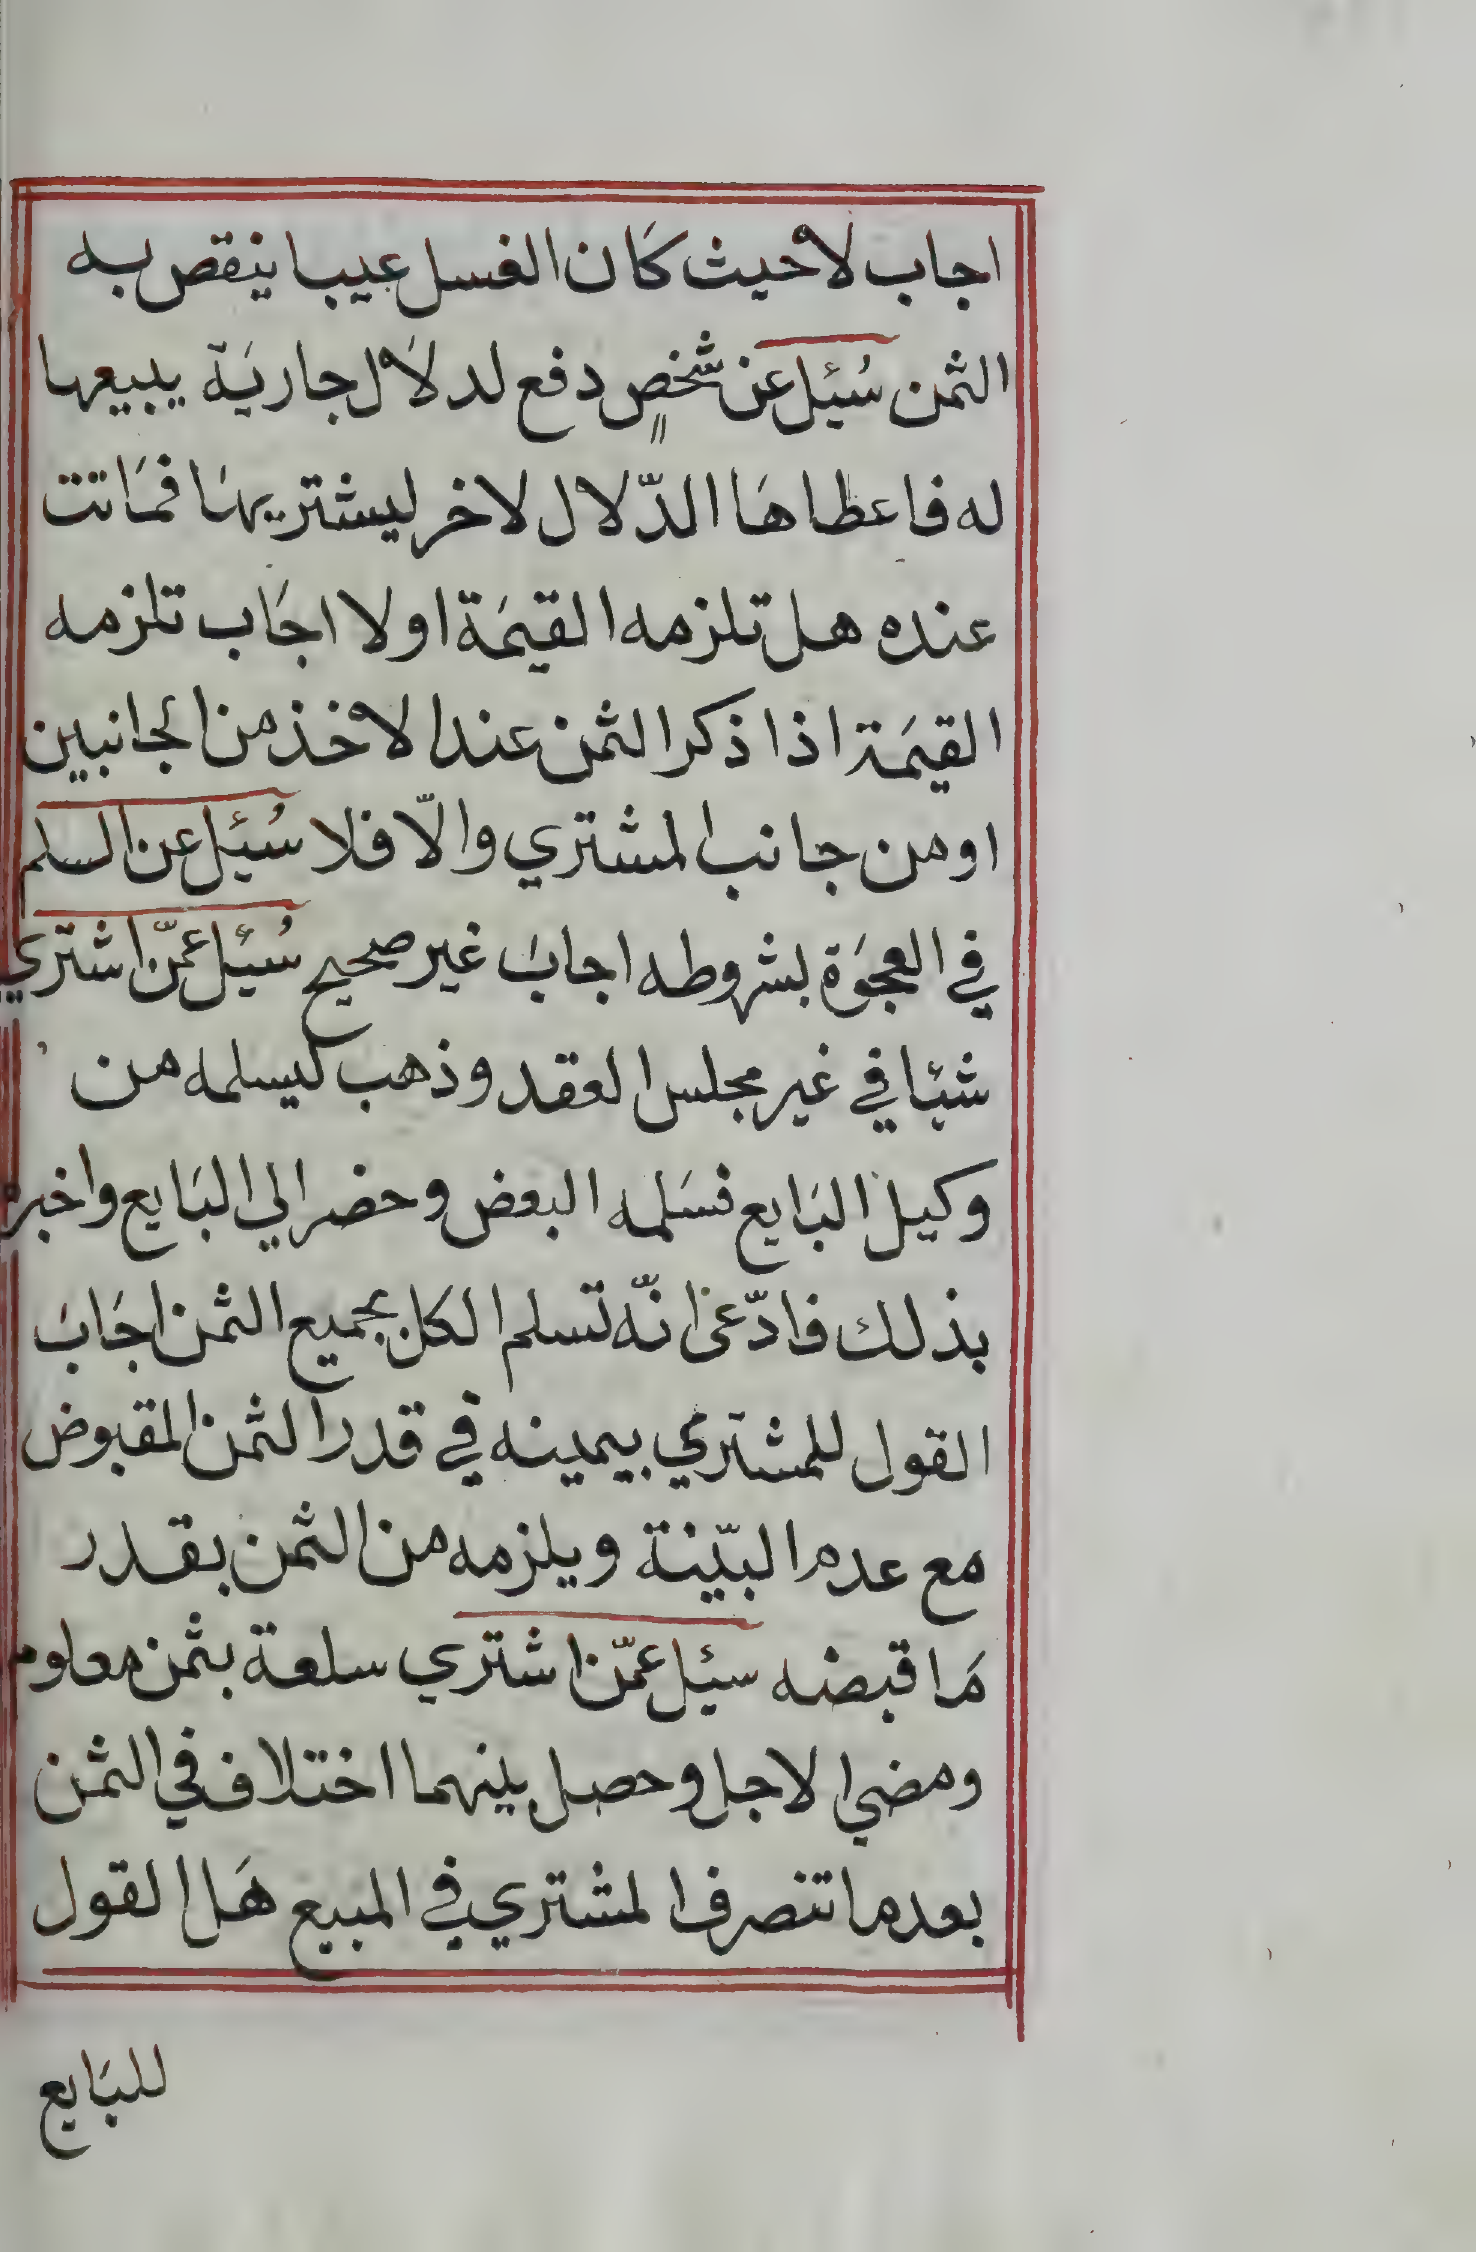 اجاب لا حيث كَان الغسل عيبا ينقص به
الثمن سُئل عن شخصٍ دفع لدلاَل جاريَة يبيعها
له فاعطاهَا الدّلال لاخر ليشتريهَا فمَاتت
عنده هل تلزمه القيمَة او لا اجَاب تلزمه
القيمَة اذا ذكر الثمن عند الاخذ من الجانبين
او من جانب المشتري والّا فلا سُئل عن السلم
في العجوَة بشروطه اجابَ غير صحيح سُئل عمّن اشتري
شيئا في غير مجلس العقد وذهب ليسلمه من
وكيل البَايع فسَلمه البعض وحضر الي البَايع واخبره
بذلك فادّعى انّه تسلم الكل بجميع الثمن اجَابَ
القول للمشتري بيمينه في قدر الثمن المقبوض
مع عدم البيّنة ويلزمه من الثمن بقدر
مَا قبضه سئل عمّن اشتري سلعة بثمن معلوم
ومضي الاجل وحصل بينهما اختلاف في الثمن
بعد ما تنصرف المشتري في المبيع هَل القول
للبَايع